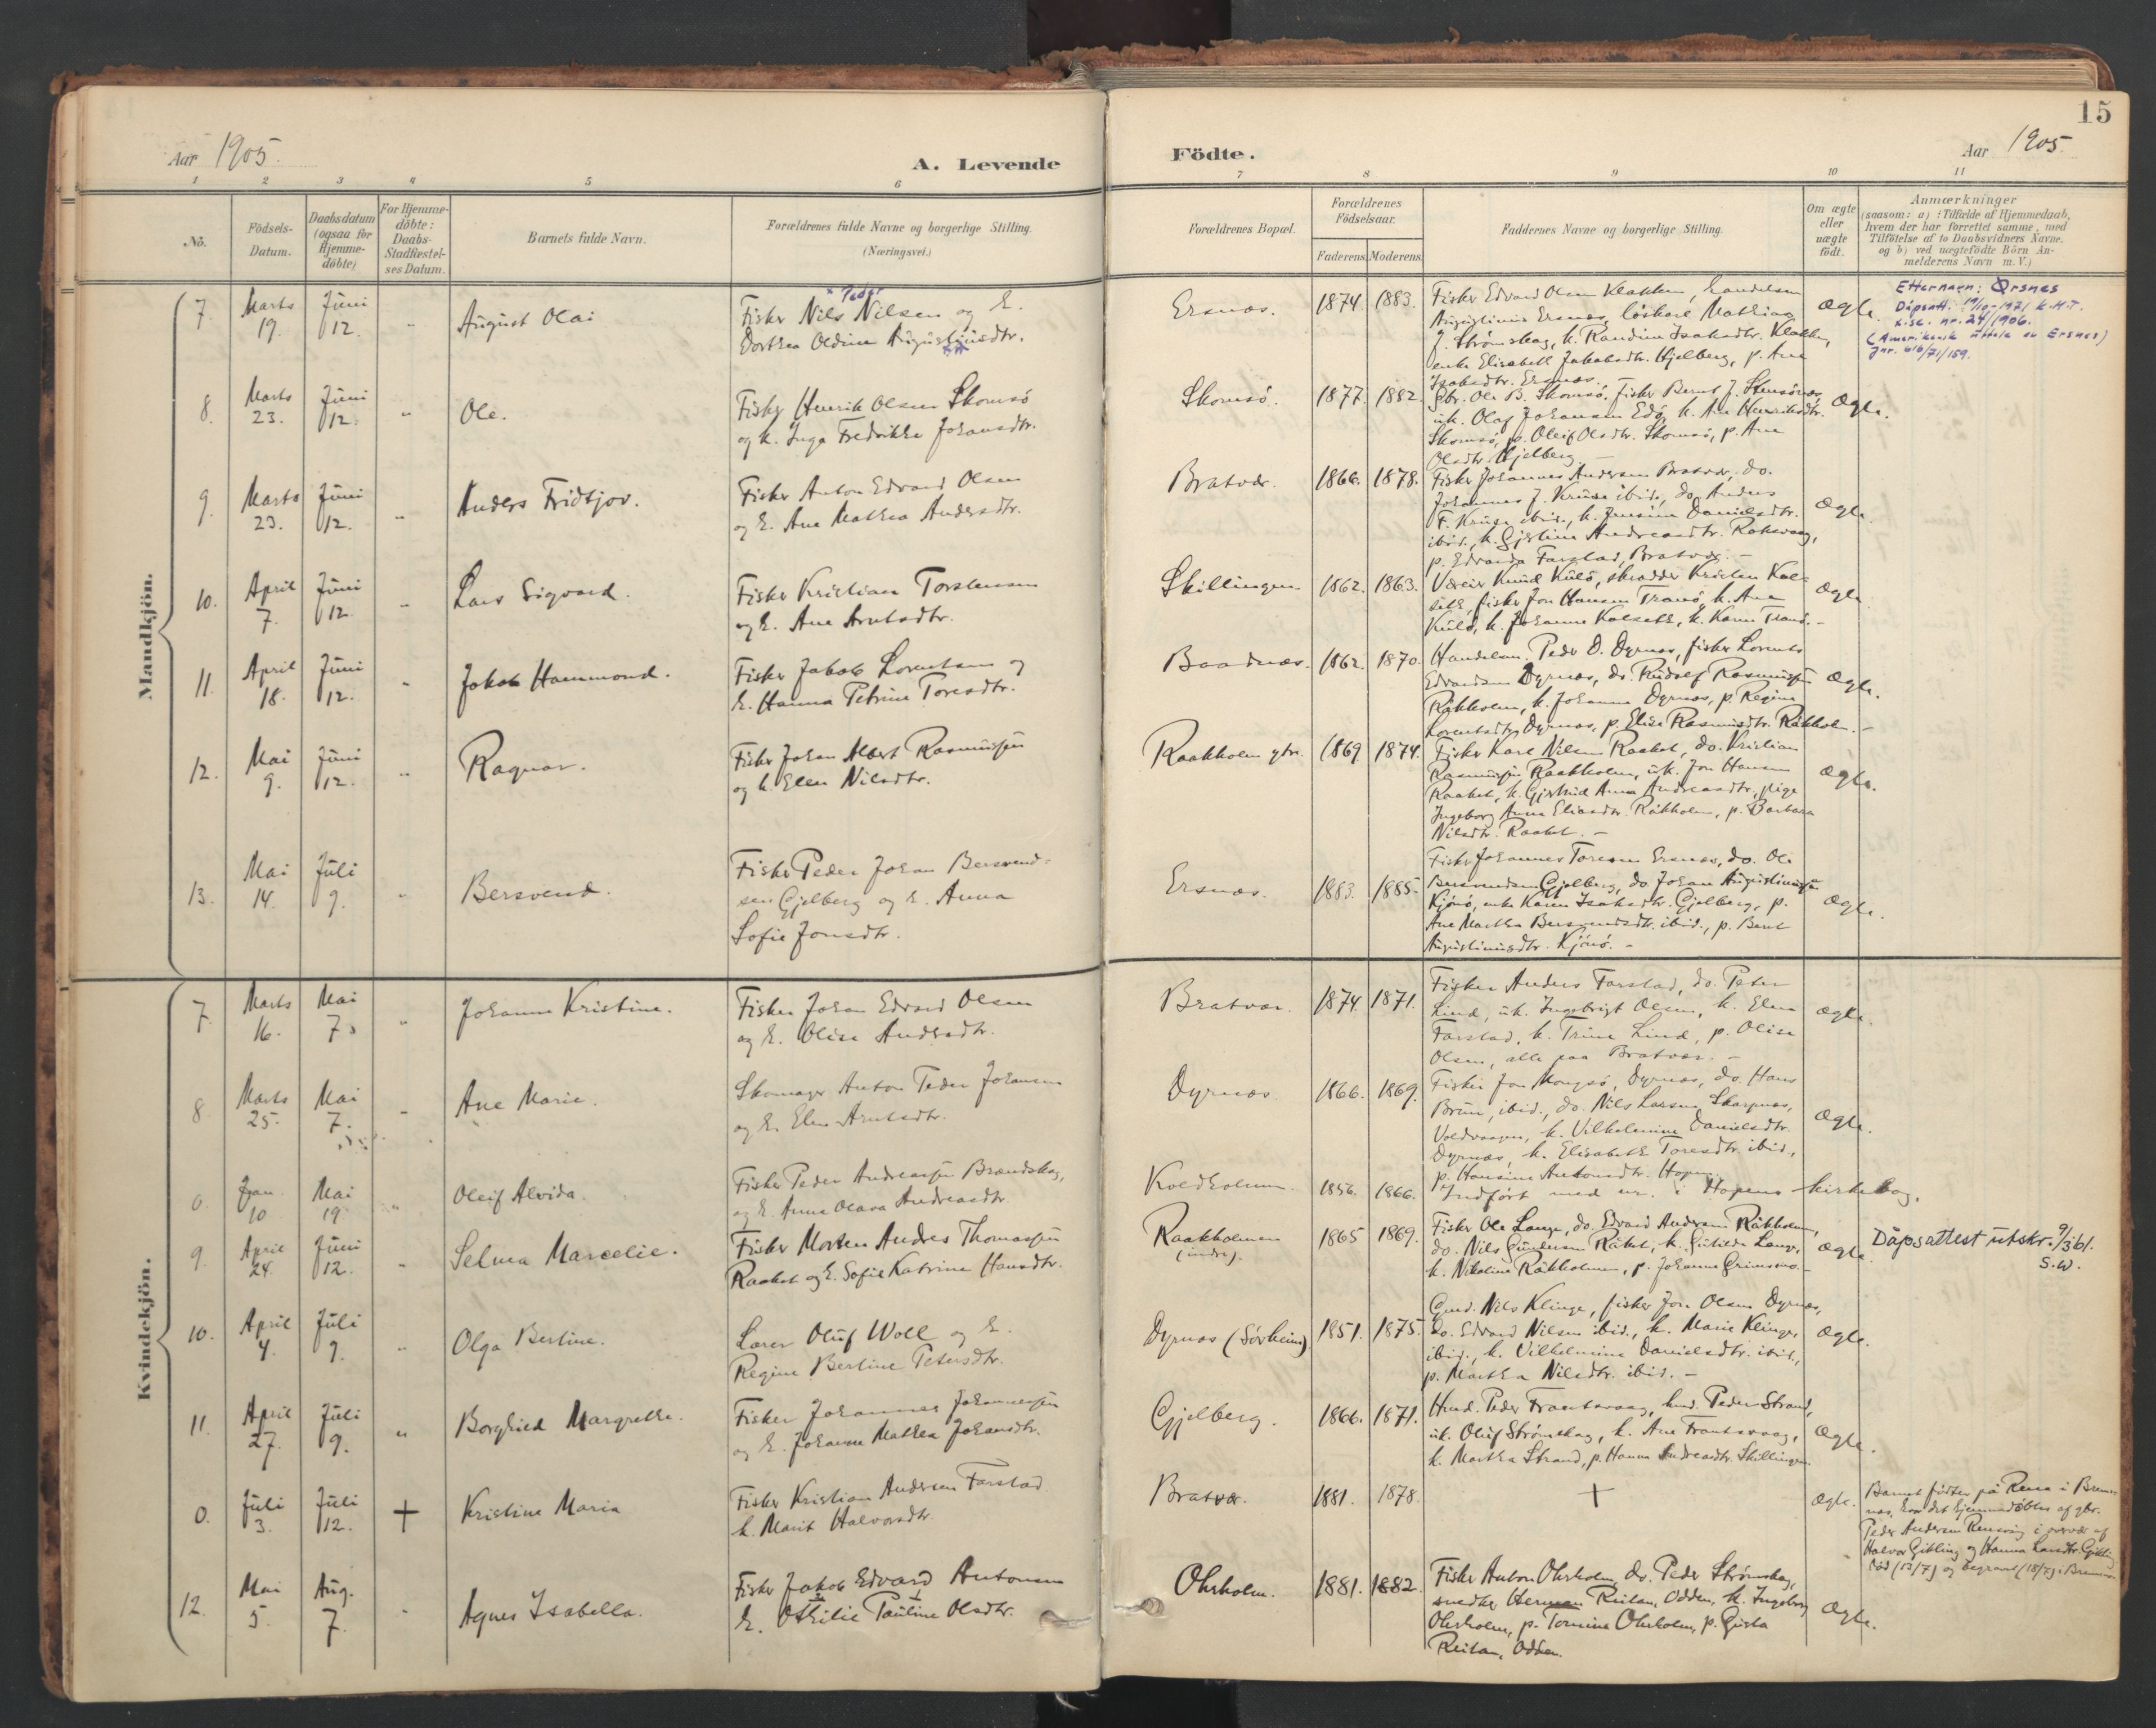 15
Aar 1905.
A. Levende
Födte.
Aar 1905.
1 2 3 4 5 6 7 8 9 10 11
No.
Födsels-
Datum.
Daabsdatum
(ogsaa for
Hjemme-
döbte)
For Hjemme-
döbte:
Daabs-
Stadfæstel-
ses Datum.
Barnets fulde Navn.
Forældrenes fulde Navne og borgerlige Stilling.
(Næringsvei.)
Forældrenes Bopæl.
Forældrenes
Födselsaar.
Faderens. Moderens.
Faddernes Navne og borgerlige Stilling.
Om ægte
eller
uægte
födt.
Anmærkninger
(saasom: a) i Tilfælde af Hjemmedaab,
hvem der har forrettet samme, med
Tilföielse af to Daabsvidners Navne.
og b) ved uægtefödte Börn An-
melderens Navn m. V.)
Mandkjön.
7. Marts 19. Juni 12. " August Olai
x Peder
Fisker Nils Nilsen og h.
Dorthea Oldine Augustinusdtr.
Ersnæs. 1874. 1883.
Fisker Edvard Olsen Klakken, handelsm.
Augustinus Ersnæs, løskarl Mathias
J. Strømskag, k. Randine Isaksdtr. Klakken,
enke Elisabeth Jakobsdtr. Hjelberg, p. Ane
Isaksdtr. Ersnæs.
Ægte.
Etternavn: Ørsnes
Dåpsatt. 19/10-1971 K.H.T.
(Amerikansk uttale av Ersnes)
Jnr. 616/71/159.
8. Marts 23. Juni 12. " Ole.
Fisker Henrik Olsen Skomsö
og h. Inga Fredrikke Johansdtr.
Skomsö. 1877. 1882.
Gbr. Ole B. Skomsö, fisker Bernt J. Stensönæs,
uk. Olaf Johansen Edö, k. Ane Henriksdtr.
Skomsö, p. Oleif Olsdtr. Skomsö, p. Ane
Olsdtr. Hjelberg. –
Ægte.
9. Marts 23. Juni 12. " Anders Fridtjov.
Fisker Anton Edvard Olsen
og h. Ane Mathea Andersdtr.
Bratvær. 1866. 1878.
Fisker Johannes Andersen Bratvær, do.
Johannes J. Kruse ibid., do. Anders
F. Kruse ibid., k. Jensine Danielsdtr.
ibid., k. Gjertine Andreasdtr. Roksvaag,
p. Edvarda Farstad, Bratvær. –
Ægte.
10. April 7. Juni 12. " Lars Sigvard.
Fisker Kristian Torstensen
og h. Ane Arntsdtr.
Skillingen 1862. 1863.
Væreier Knud Kulö, skrædder Kristen Kal-
seth, fisker Jon Hansen Tranö, k. Ane
Kulö, k. Johanne Kalseth, k. Karen Tranö. –
Ægte
11. April 18. Juni 12. " Jakob Hammond.
Fisker Jakob Lorentsen og
h. Hanna Petrine Toresdtr.
Baadnæs. 1862. 1870.
Handelsm. Peder O. Dyrnæs, fisker Lorents
Edvardsen Dyrnæs, do. Rudolf Rasmussen
Råkholm, k. Johanne Dyrnæs, p. Regine
Lorentsdtr. Dyrnæs, p. Elise Rasmusdtr. Råkholm. –
Ægte.
12. Mai 9. Juni 12. " Ragnar.
Fisker Johan Albert Rasmussen
og h. Elen Nilsdtr.
Raakholm ytre. 1869 1874.
Fisker Karl Nilsen Raaket, do. Kristian
Rasmussen Raakholm, uk. Jon Hansen
Raaket, k. Gjertrud Anna Andreasdtr., pige
Ingeborg Anna Eliasdtr. Råkholm, p. Barbara
Nilsdtr. Raaket. –
Ægte.
13. Mai 14. Juli 9. " Bersvend.
Fisker Peder Johan Bersvend-
sen Gjelberg og h. Anna
Sofie Jonsdtr.
Ersnæs. 1883. 1885.
Fisker Johannes Toresen Ersnæs, do. Ole
Bersvendsen Gjelberg, do. Johan Augustinussen
Kjönö, enke Karen Isaksdtr. Gjelberg, p.
Ane Marthea Bersvendsdtr. ibid., p. Berit
Augustinusdtr. Kjönö. –
Ægte.
Kvindekjön.
7. Marts 16. Mai 7. " Johanne Kristine.
Fisker Johan Edvard Olsen
og h. Olise Andersdtr.
Bratvær. 1874. 1871.
Fisker Anders Farstad, do. Peter
Lind, uk. Ingebrigt Olsen, k. Elen
Farstad, k. Trine Lind, p. Olise
Olsen, alle paa Bratvær. –
Ægte.
8. Marts 25. Mai 7. " Ane Marie.
Skomager Anton Peder Johansen
og h. Elen Arntsdtr.
Dyrnæs 1866. 1869.
Fisker Jon Mongsö, Dyrnæs, do. Hans
Bruun, ibid., do. Nils Larsen Skarpnæs,
Voldvaagen, k. Vilhelmine Danielsdtr.
Dyrnæs, k. Elisabeth Toresdtr. ibid.,
p. Hansine Antonsdtr. Hopen.
Ægte.
0. Jan. 10 Mai 19 " Oleif Alvida.
Fisker Peder Andreassen Brandskag,
og h. Anne Olava Andreasdtr.
Kvedholmen. 1856. 1866.
Indført med nr. i Hopens kirkebog.
9. April 24. Juni 12. " Selma Marcelie.
Fisker Morten Andres Thomassen
Raaket og h. Sofie Katrine Hansdtr.
Raakholmen
(indre). 1865 1869.
Fisker Ole Lange, do. Edvard Andersen Råkholmen,
do. Nils Gundersen Råket, k. Gunhild Lange,
k. Nikoline Råkholmen, p. Johanne Grimsmo. –
Ægte.
Dåpsattest utskr. 9/3 61.
S.W.
10. April 4. Juli 9. " Olga Bertine.
Lærer Oluf Woll og h.
Regine Bertine Petersdtr.
Dyrnæs (Sörheim) 1851. 1875.
Gmd. Nils Klinge, fisker Jon Olsen Dyrnæs,
do. Edvard Nilsen ibid., k. Marie Klinge,
ibid., k. Vilhelmine Danielsdtr. ibid.,
p. Marthea Nilsdtr. ibid. –
Ægte.
11. April 27. Juli 9. " Borghild Margrethe.
Fisker Johannes Johannessen
og h. Johanne Mathea Johansdtr.
Gjelberg. 1866. 1871.
Hmd. Peder Frantsvaag, hmd. Peder Strand,
uk. Oluf Strömskag, k. Ane Frantsvaag,
k. Marthea Strand, p. Hanna Andreasdtr. Skillingen.
Ægte.
0. Juli 3. Juli 12. + Kristine Maria
Fisker Kristian Andersen Farstad
h. Marit Halvorsdtr.
Bratvær. 1881. 1878.
+
Ægte.
Barnet födtes på Rensv i Brems-
næs, hvor det hjemmedöbtes af gbr.
Peder Andersen Rensvig i overvær af
Halvor Gitling og Hanna Larsdtr. Gitling.
Död (13/7) og begravet (18/7) i Bremsnes.
12. Mai 5. Aug. 7. " Agnes Isabella.
Fisker Jakob Edvard Antonsen
h. Othilie Pauline Olsdtr.
Ohrholm. 1881. 1882.
Fisker Anton Ohrholm, do. Peder Strömskag,
snedker Herman Reitan, Odden, k. Ingeborg
Ohrholm, p. Tomine Ohrholm, p. Gusta
Reitan, Odden.
Ægte.